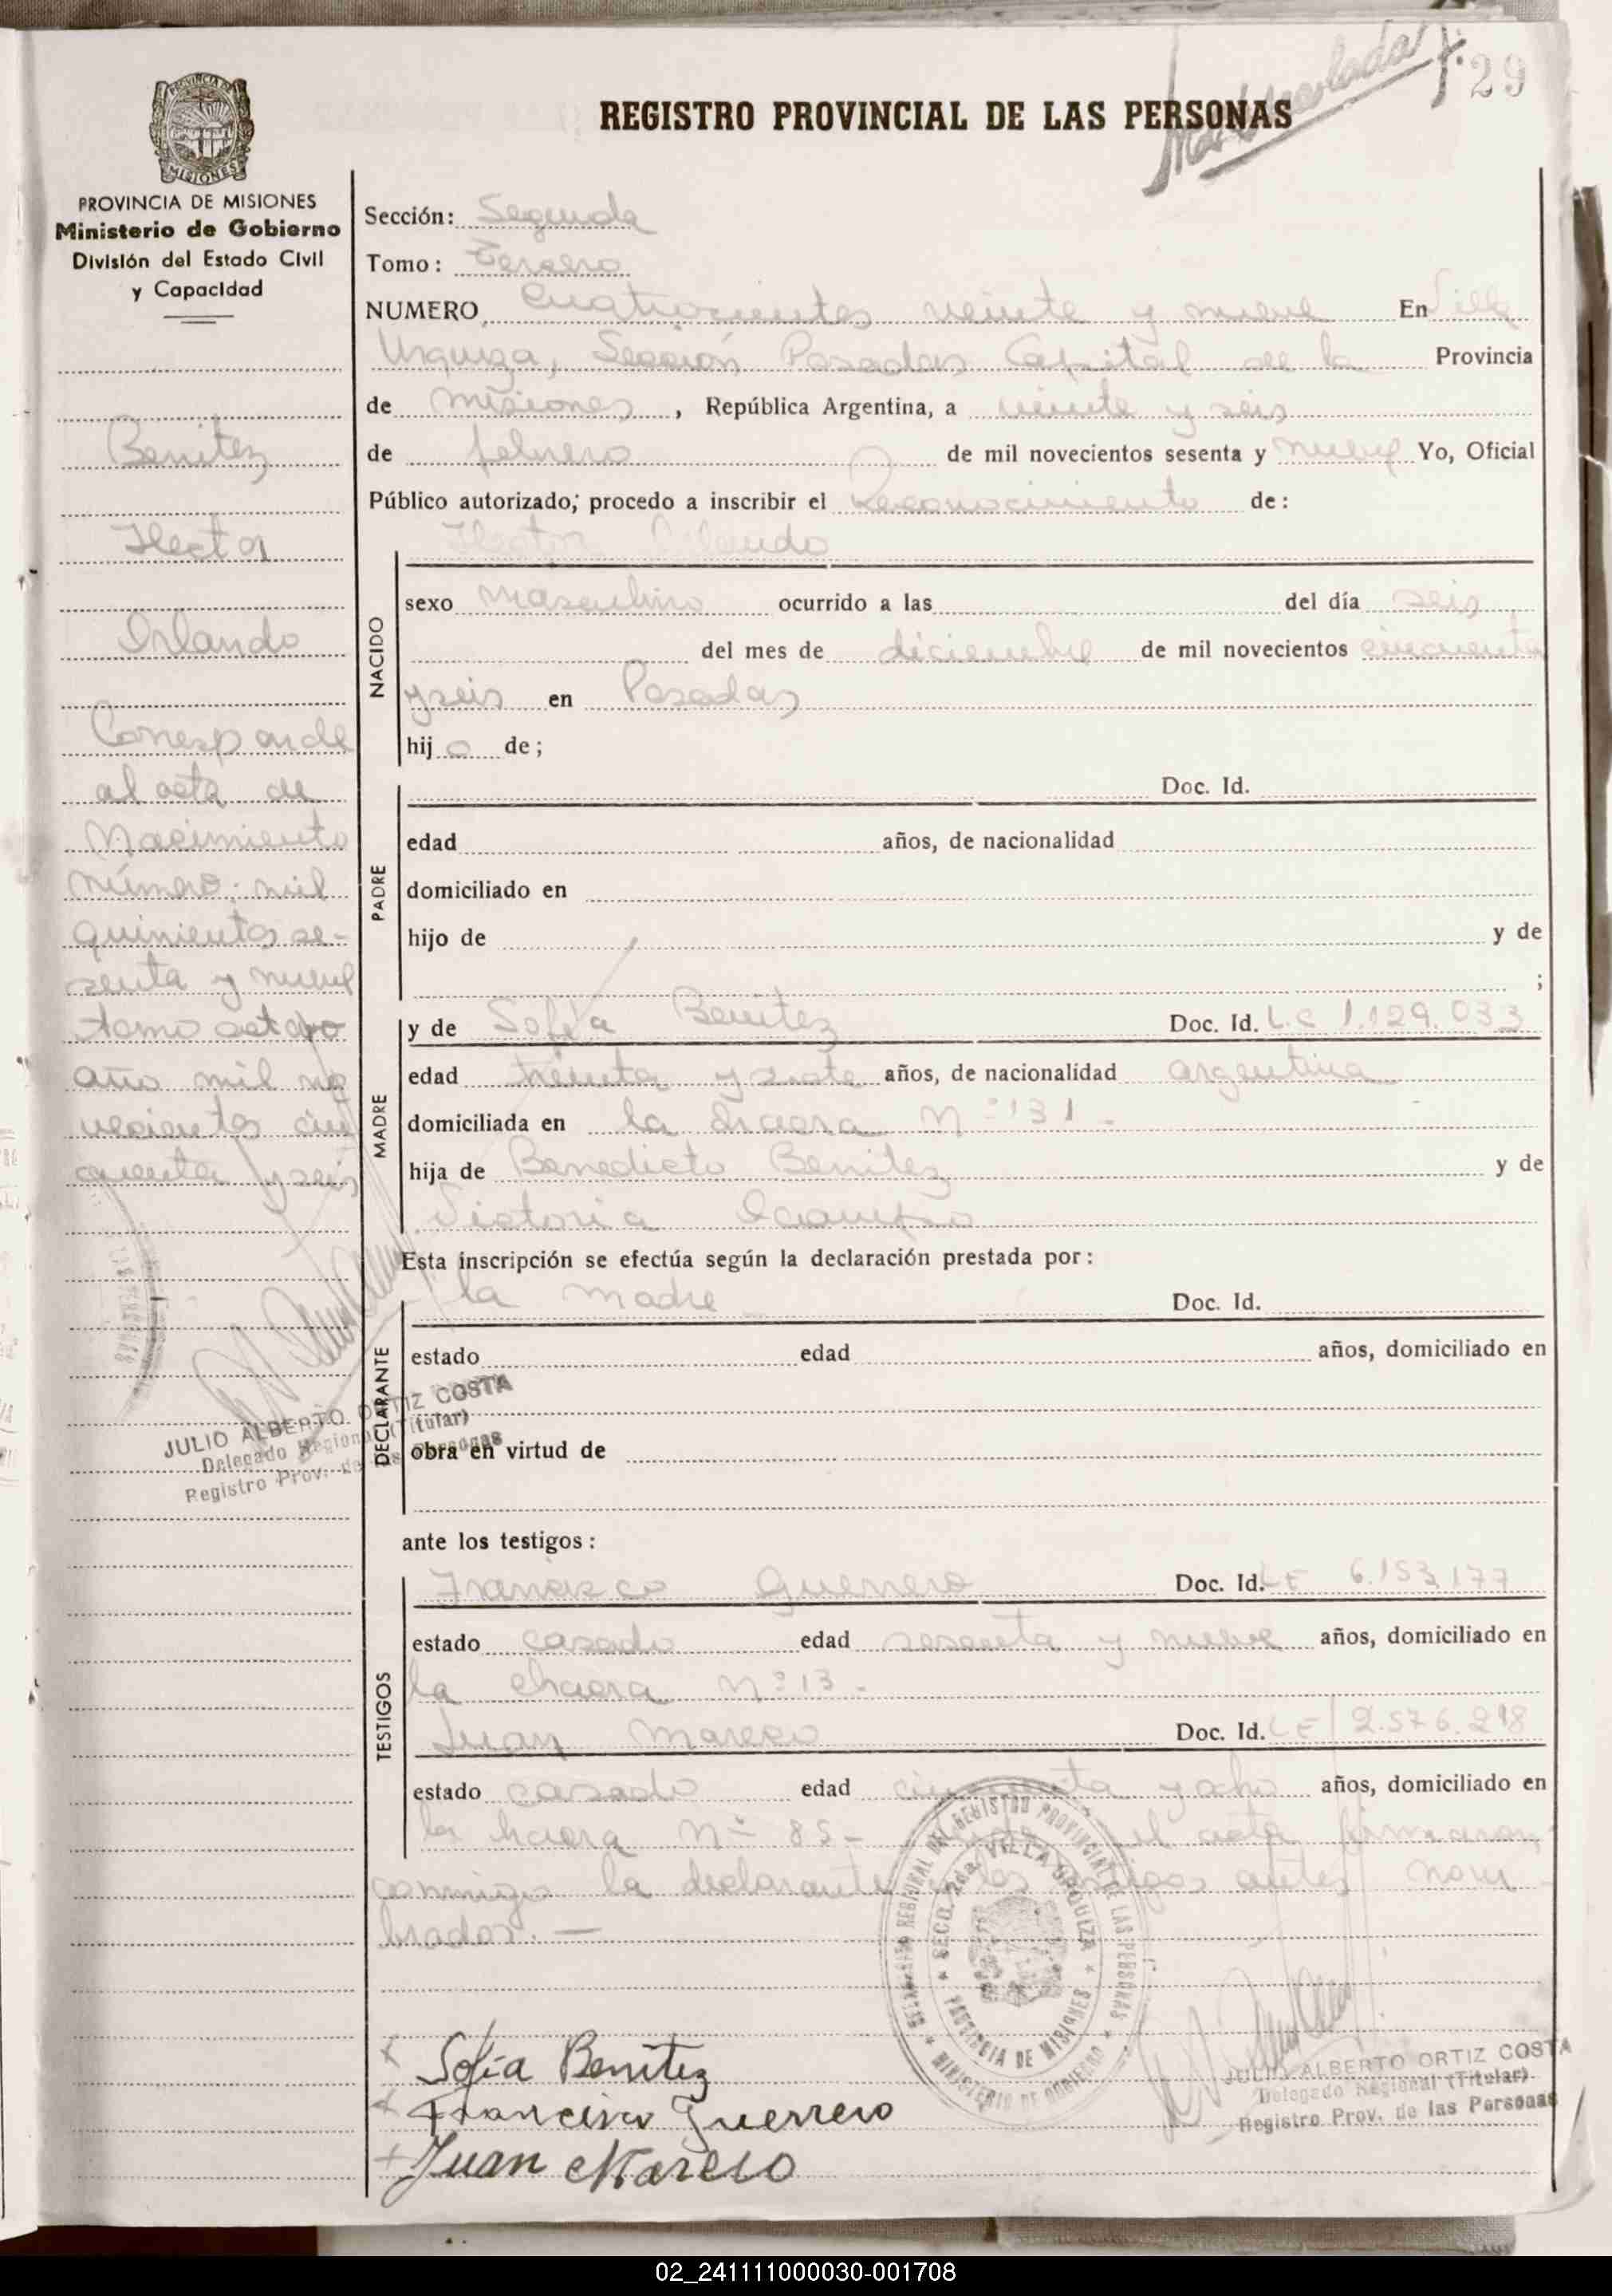 Matriculada
f. 29
REGISTRO PROVINCIAL DE LAS PERSONAS
PROVINCIA DE
MISIONES
PROVINCIA DE MISIONES
Ministerio de Gobierno
División del Estado Civil
y Capacidad
Benitez
Hector
Orlando
Corresponde
al acta de
Nacimiento
número: mil
quinientos se-
senta y nueve
tomo octavo
año mil no
vecientos cin
cuenta y seis
JULIO ALBERTO ORTIZ COSTA
Delegado Regional (Titular)
Registro Prov. de las Personas
Sección: Segunda
Tomo: Tercero
NUMERO Cuatrocientos veinte y nueve En Villa
Urquiza, Sección Posadas Capital de la Provincia
de Misiones, República Argentina, a veinte y seis
de febrero de mil novecientos sesenta y nueve Yo, Oficial
Público autorizado; procedo a inscribir el Reconocimiento de:
Hector Orlando
NACIDO
sexo masculino ocurrido a las del día seis
del mes de diciembre de mil novecientos cincuenta
y seis en Posadas
hijo de;
PADRE
Doc. Id.
edad años, de nacionalidad
domiciliado en
hijo de y de
;
MADRE
y de Sofía Benitez Doc. Id. L.C 1.129.033
edad treinta y siete años, de nacionalidad argentina
domiciliada en la chacra Nº 131 -
hija de Benedicto Benitez y de
Victoria Ocampo
Esta inscripción se efectúa según la declaración prestada por:
DECLARANTE
la madre Doc. Id.
estado edad años, domiciliado en
obra en virtud de
ante los testigos:
TESTIGOS
Francisco Guerrero Doc. Id. LE 6.153.177
estado casado edad sesenta y nueve años, domiciliado en
la chacra Nº 13 -
Juan Marero Doc. Id. LE 2.576.218
estado casado edad cincuenta y ocho años, domiciliado en
la chacra Nº 85 - el acta firmaron
conmigo la declarante y los testigos antes nom
brados. —
DELEGACION REGIONAL DEL REGISTRO PROVINCIAL DE LAS PERSONAS
MINISTERIO DE GOBIERNO
SECC. 2da. VILLA URQUIZA
PROVINCIA DE MISIONES
Sofia Benitez
Francisco Guerrero
Juan Marero
JULIO ALBERTO ORTIZ COSTA
Delegado Regional (Titular)
Registro Prov. de las Personas
02_241111000030-001708